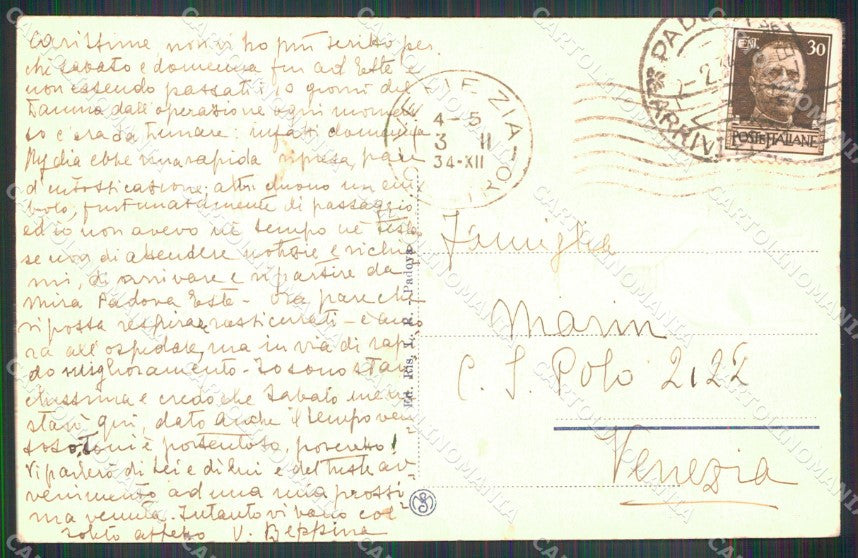 Carissime, non vi ho più scritto per
chè sabato e domenica fui ad Este e
non essendo passati i 10 giorni del
l'operazione ogni momen
to c'era da tremare: infatti domenica
Lydia ebbe una rapida ripresa, pare
d'intossicazione, altri dicono un em
bolo, fortunatamente di passaggio
ed io non avevo nè tempo nè testa
se non di attendere notizie e richia
mi, di arrivare e ripartire da
Mira Padova Este - Ora pare che
si possa respirare rasserenati - è anco
ra all'ospedale, ma in via di rapi
do miglioramento - Io sono stan
chissima e credo che sabato me ne
starò qui, dato anche il tempo ven
toso, è portentoso, poveretto!
Vi parlerò di lei e di lui e del triste av
venimento ad una mia prossi
ma venuta. Intanto vi bacio col
solito affetto V. Beppina
Ed. Ris. - Padova
VENEZIA
4-5
3 II
34-XII
PADOVA
ARRIVI
CENT. 30
POSTE ITALIANE
Famiglia
Marin
C. S. Polo 2122
Venezia
CARTOLINOMANIA